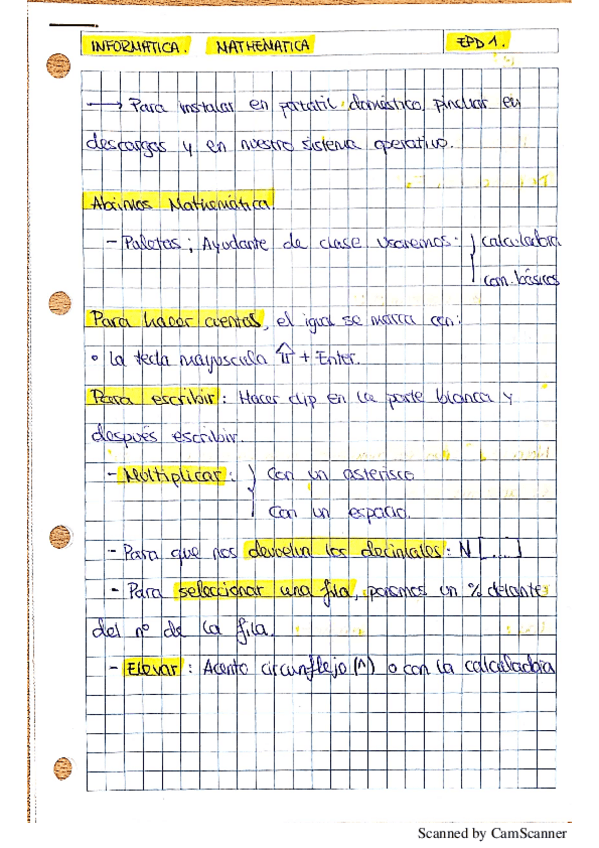 INFORMÁTICA. MATHEMATICA EPD 1.
→ Para instalar en portátil doméstico, pinchar en
descargas y en nuestro sistema operativo.
Abrimos Mathemática.
- Paletas; Ayudante de clase. Usaremos: calculadora
con. básicos
Para hacer cuentas, el igual se marca con:
• La tecla mayuscula ⇧ + Enter.
Para escribir: Hacer clip en la parte blanca y
después escribir.
- Multiplicar: Con un asterisco
Con un espacio.
- Para que nos devuelva los decimales: N [....]
- Para seleccionar una fila, ponemos un % delante
del nº de la fila.
- Elevar: Acento circunflejo (^) o con la calculadora
Scanned by CamScanner